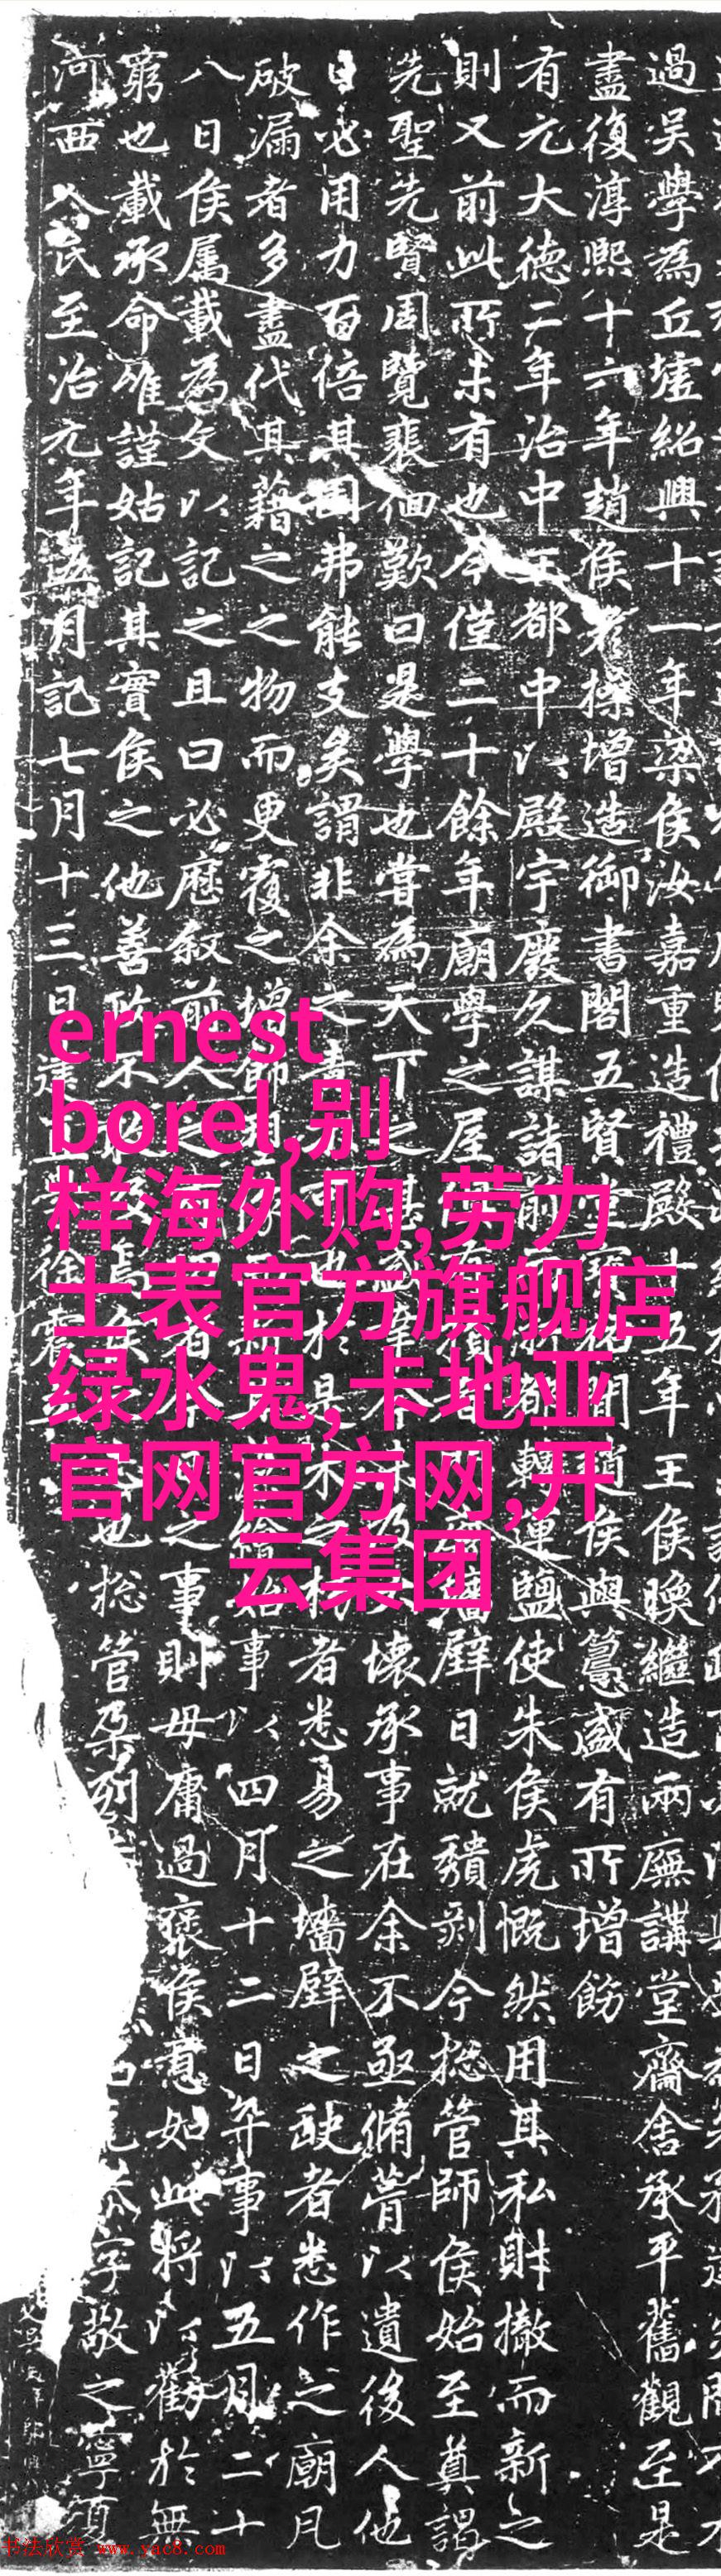 過吴學為丘墟紹興十一年梁侯汝嘉重造禮殿十五年王侯㬇繼造兩廡講堂齋舍承平舊觀至是
盡復淳熙十六年趙侯操增造御書閣五賢間趙侯與有所增飭
有元大德二年治中王都中以殿宇廢久謀諸前轉運鹽使朱侯虎慨然用其私財撤而新之
則又前此所未有也今僅二十餘年廟學之屋壁日就穨剥今捴管師侯始至奠謁
先聖先賢周覽裴佪歎曰是學也嘗為天下之甚盛壞承事在余不亟脩葺以遺後人他
日必用力百倍其困弗能支矣謂非余之責也於是者悉易之墻壁之缺者悉作之廟凡
破漏者多盡代其藉之之物而更覆之增飾始事以四月十二日卒事以五月二十
八日侯属載為文以記之且曰必歷敘前人之之事則毋庸過褒侯意如此將以勸於無
窮也載承命惟謹姑記其實侯之他善政不焉侯也捴管朶列字敬之寧
河西人民至治元年五月記七月十三日建徐震
ernest
borel,别
样海外购,劳力
士表官方旗舰店
绿水鬼,卡地亚
官网官方网,开
云集团
书法欣赏 www.yac8.com